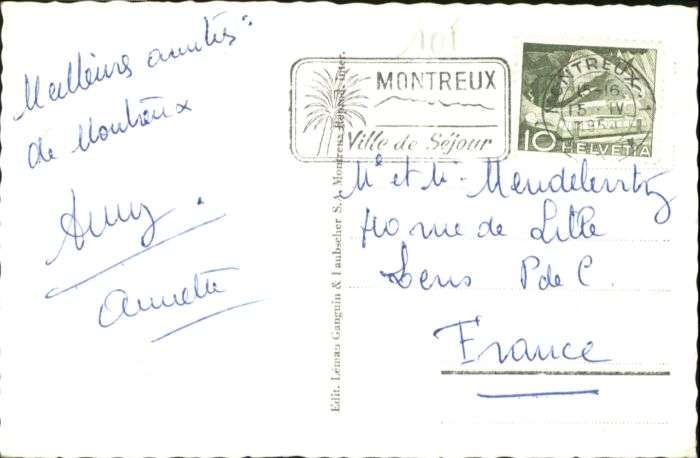 Meilleures amitiés
de Montreux
Annette
MONTREUX
Ville de Séjour
MONTREUX
15-16
15. IV
195
10 HELVETIA
Edit. Léman Ganguin & Laubscher S.A. Montreux Reprod. inter.
Mr et Me
rue de Lille
Lens P de C.
France